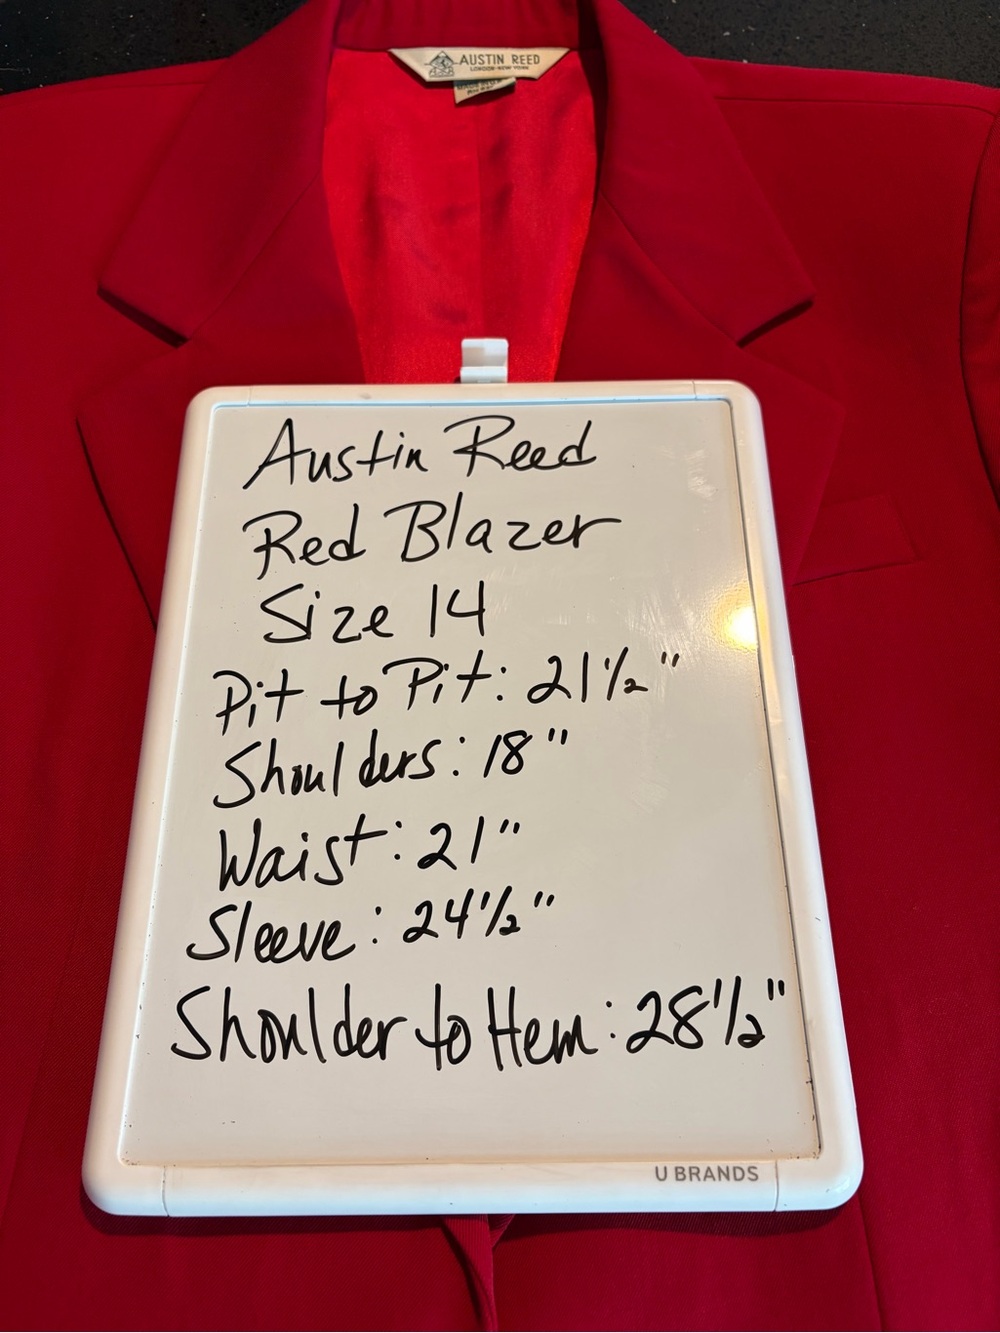 AUSTIN REED
LONDON • NEW YORK
Austin Reed
Red Blazer
Size 14
Pit to Pit: 21½"
Shoulders: 18"
Waist: 21"
Sleeve: 24½"
Shoulder to Hem: 28½"
U BRANDS